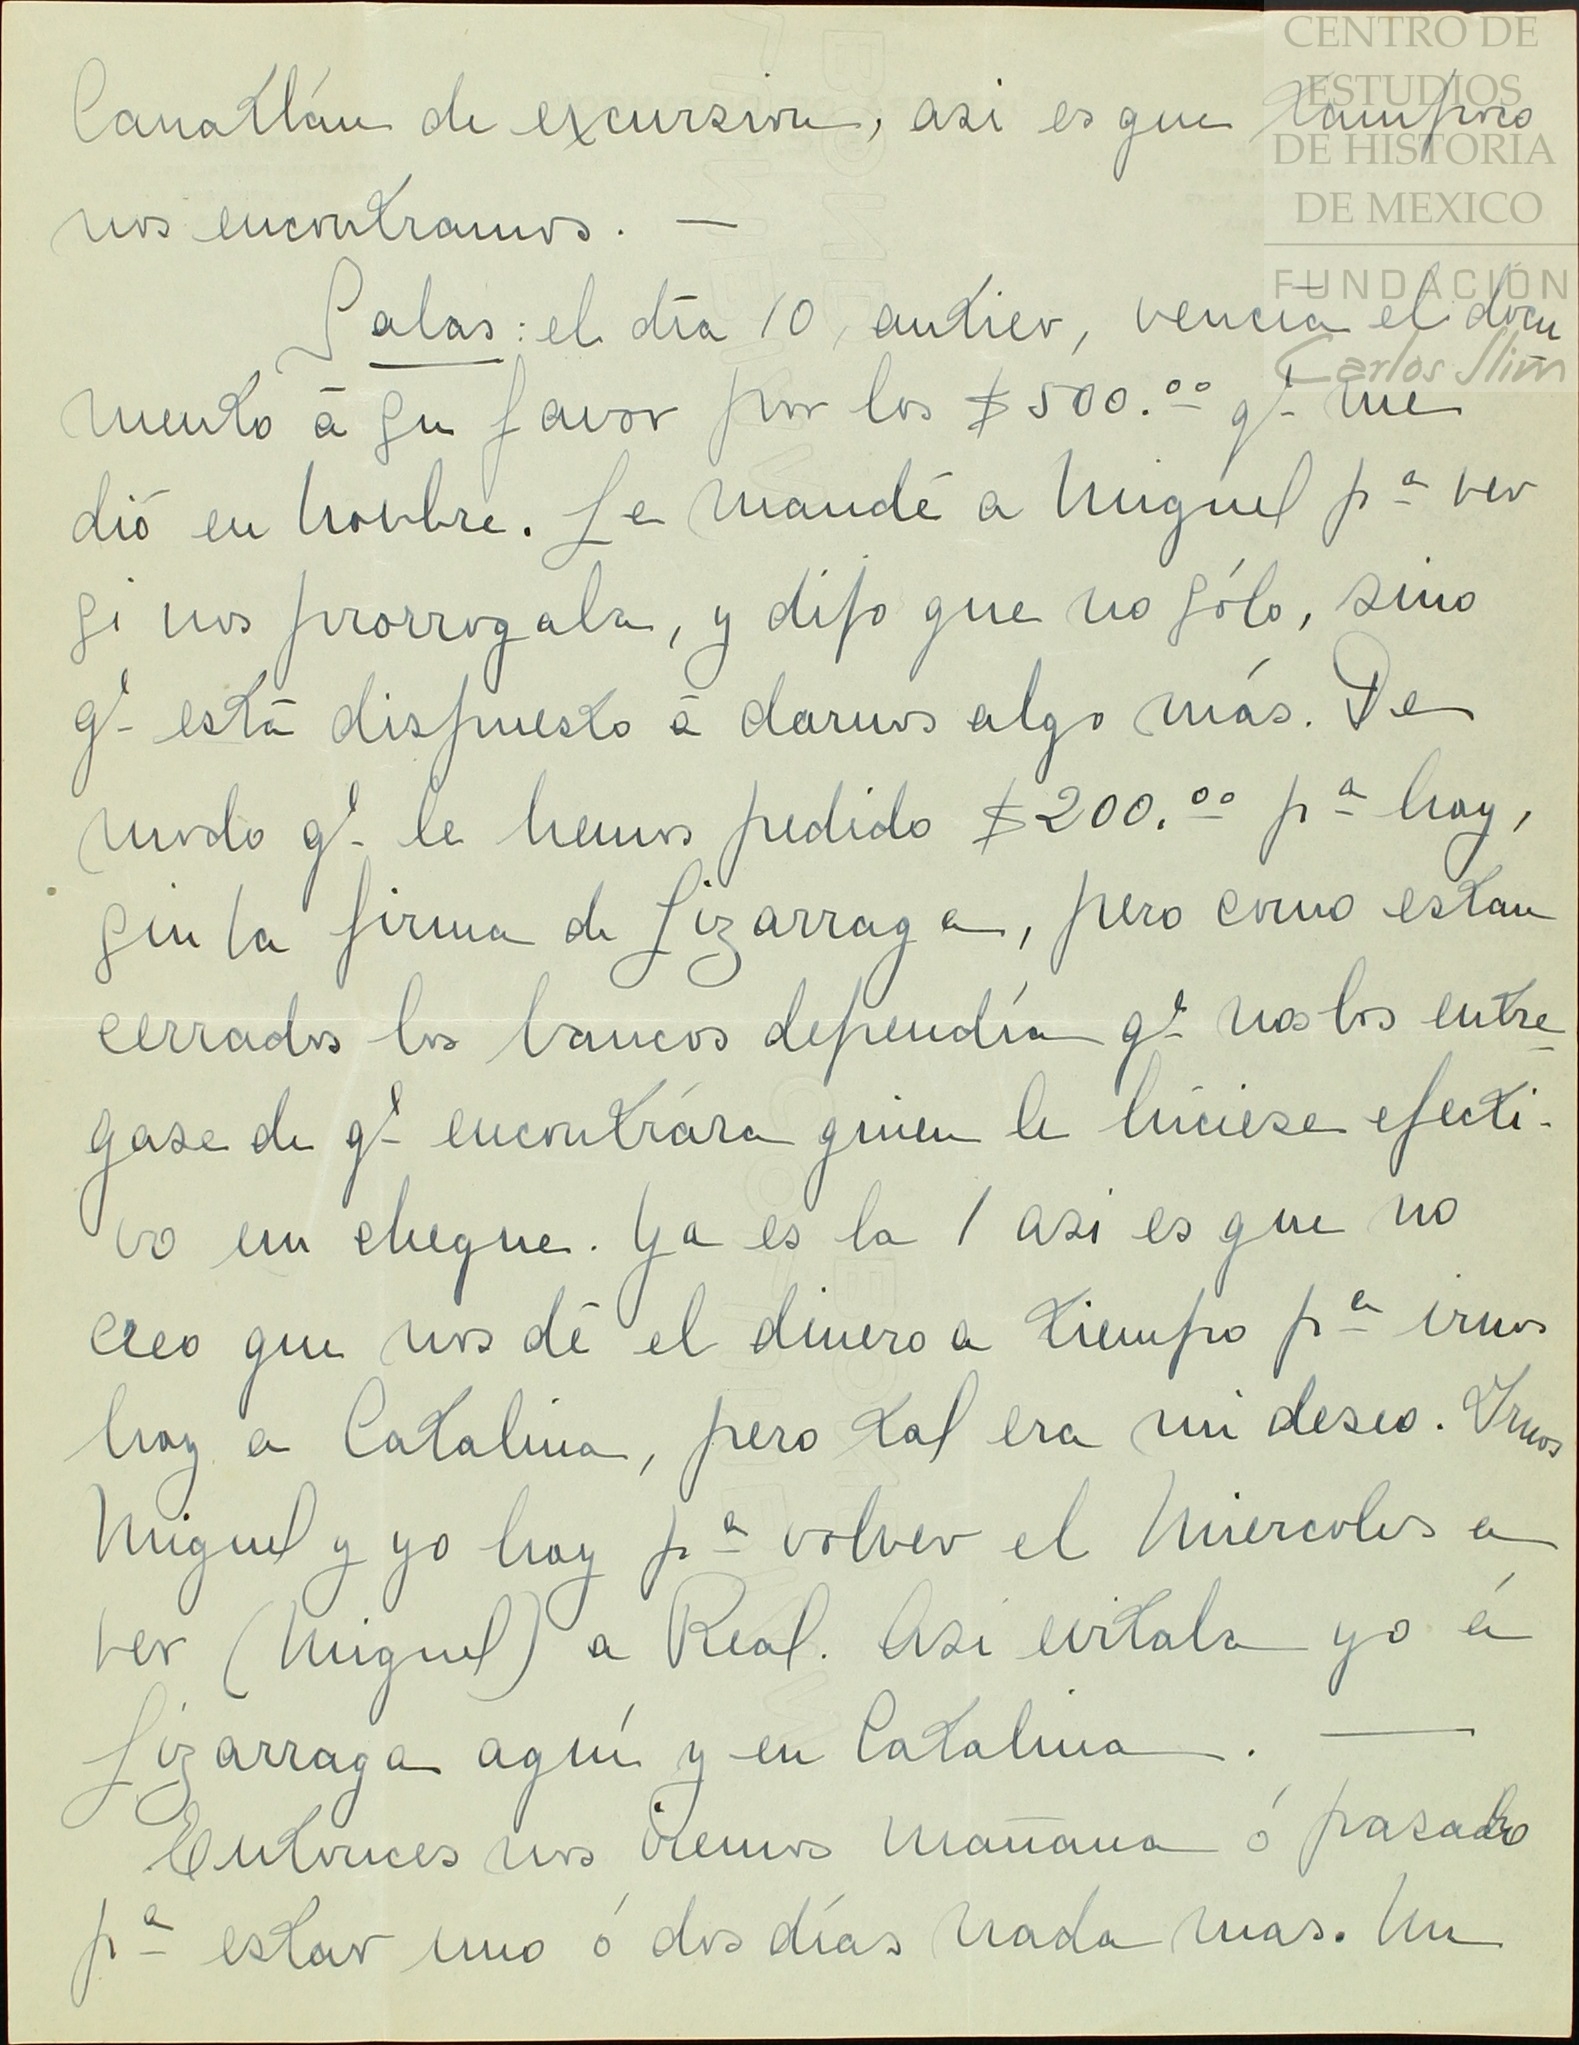 CENTRO DE
ESTUDIOS
DE HISTORIA
DE MEXICO
FUNDACIÓN
Carlos Slim
Canatlán de excursion, asi es que tampoco
nos encontramos. —
Salas: el día 10, antier, vencía el docu
mento á su favor por los $500.00 qe me
dió en Novbre. Le mandé a Miguel pa ver
si nos prorrogaba, y dijo que no sólo, sino
qe está dispuesto á darnos algo más. De
modo qe le hemos pedido $200.00 pa hoy,
sin la firma de Lizarraga, pero como estan
cerrados los bancos dependía qe nos los entre-
gase de qe encontrára quien le hiciese efecti-
vo un cheque. Ya es la 1 asi es que no
creo que nos dé el dinero a tiempo pa irnos
hoy a Catalina, pero tal era mi deseo. Irnos
Miguel y yo hoy pa volver el Miercoles a
ver (Miguel) a Real. Asi evitaba yo á
Lizarraga aquí y en Catalina. —
Entonces nos iremos mañana ó pasado
pa estar uno ó dos días nada mas. Un